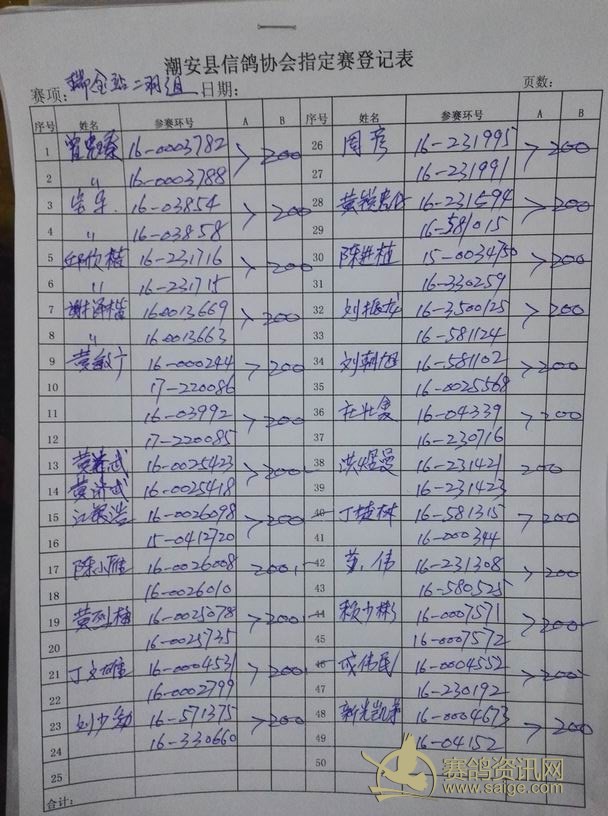 潮安县信鸽协会指定赛登记表
赛项: 瑞金站二羽组 日期: 页数:
序号 姓名 参赛环号 A B 序号 姓名 参赛环号 A B
1 16-0003782 > 200 26 周彦 16-231995 > 200
2 〃 16-0003788 27 16-231991
3 16-03854 > 200 28 16-231594 > 200
4 〃 16-03858 29 16-581015
5 邱欣楷 16-231716 > 200 30 陈进植 15-0034750 > 200
6 〃 16-231715 31 16-330259
7 谢泽楷 16-0013669 > 200 32 刘振龙 16-3500125 > 200
8 〃 16-0013663 33 16-581124
9 黄敏广 16-000244 > 200 34 刘朝旭 16-581102 > 200
10 17-220086 35 16-0025568
11 16-03992 > 200 36 庄壮 16-04339 > 200
12 17-220085 37 16-230716
13 黄济武 16-0025423 > 200 38 洪煜曼 16-231421 200
14 黄济武 16-0025418 39 16-231423
15 江 浩 16-0026098 > 200 40 丁楚林 16-581315 > 200
16 15-0412720 41 16-000344
17 陈小雁 16-0026008 200 42 黄伟 16-231308 > 200
18 16-0026010 43 16-580525
19 黄烈楠 16-0025078 > 200 44 赖少彬 16-0007571 > 200
20 16-0025735 45 16-0007572
21 丁文雄 16-0004531 > 200 46 成伟民 16-0004552 > 200
22 16-0002799 47 16-230192
23 刘少勃 16-571375 > 200 48 新光凯弟 16-0004673 > 200
24 16-330660 49 16-04152
25 50
合计:
赛鸽资讯网
www.saige.com